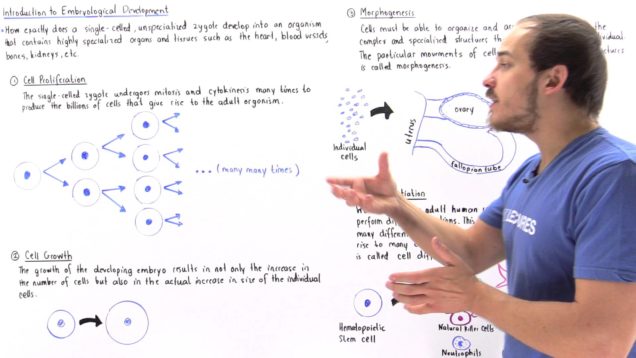 Introduction to Embryological Development
• How exactly does a single-celled, unspecialized zygote develop into an organism
that contains highly specialized organs and tissues such as the heart, blood vessels,
bones, kidneys, etc.
① Cell Proliferation
The single-celled zygote undergoes mitosis and cytokinesis many times to
produce the billions of cells that give rise to the adult organism.
... (many many times)
② Cell Growth
The growth of the developing embryo results in not only the increase in
the number of cells but also in the actual increase in size of the individual
cells.
③ Morphogenesis
Cells must be able to organize and the
complex and specialized structures th individual
The particular movements of cell structures
is called morphogenesis.
Individual
cells
uterus
ovary
fallopian tube
adult human
perform di This
many differe
rise to many
is called cell diff
Hematopoietic
Stem cell
Natural Killer Cells
Neutrophils
LECTURES